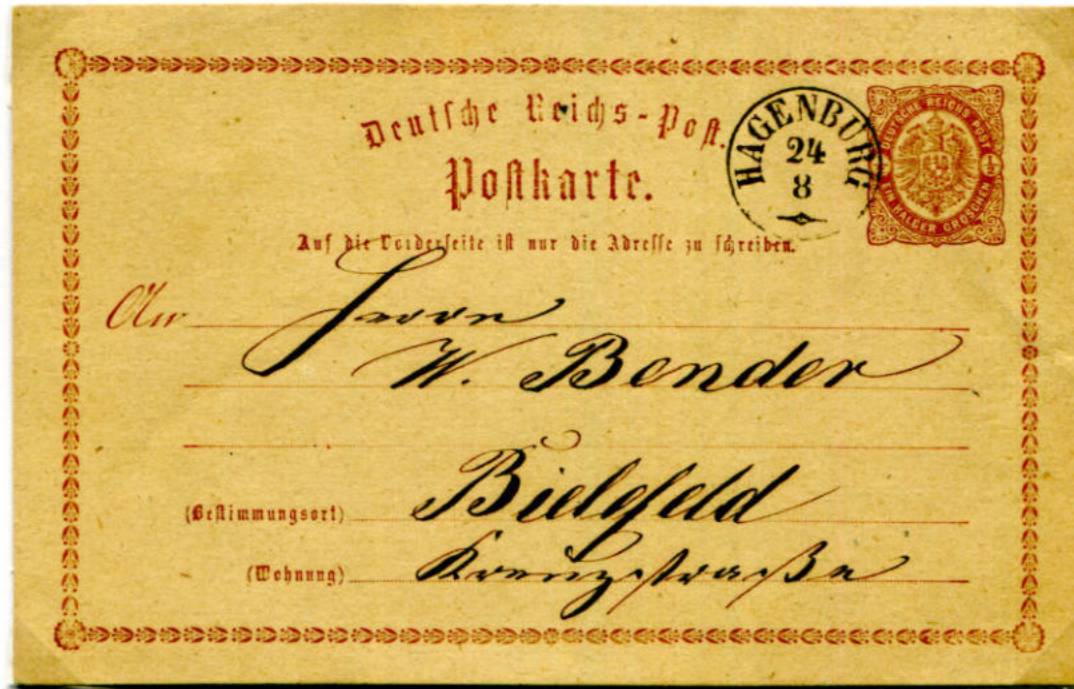 Deutsche Reichs-Post.
Postkarte.
HAGENBURG
24
8
DEUTSCHE REICHS POST
EIN HALBER GROSCHEN
Auf die Vorderseite ist nur die Adresse zu schreiben.
An Herrn
W. Bender
(Bestimmungsort) Bielefeld
(Wohnung) Kreuzstraße